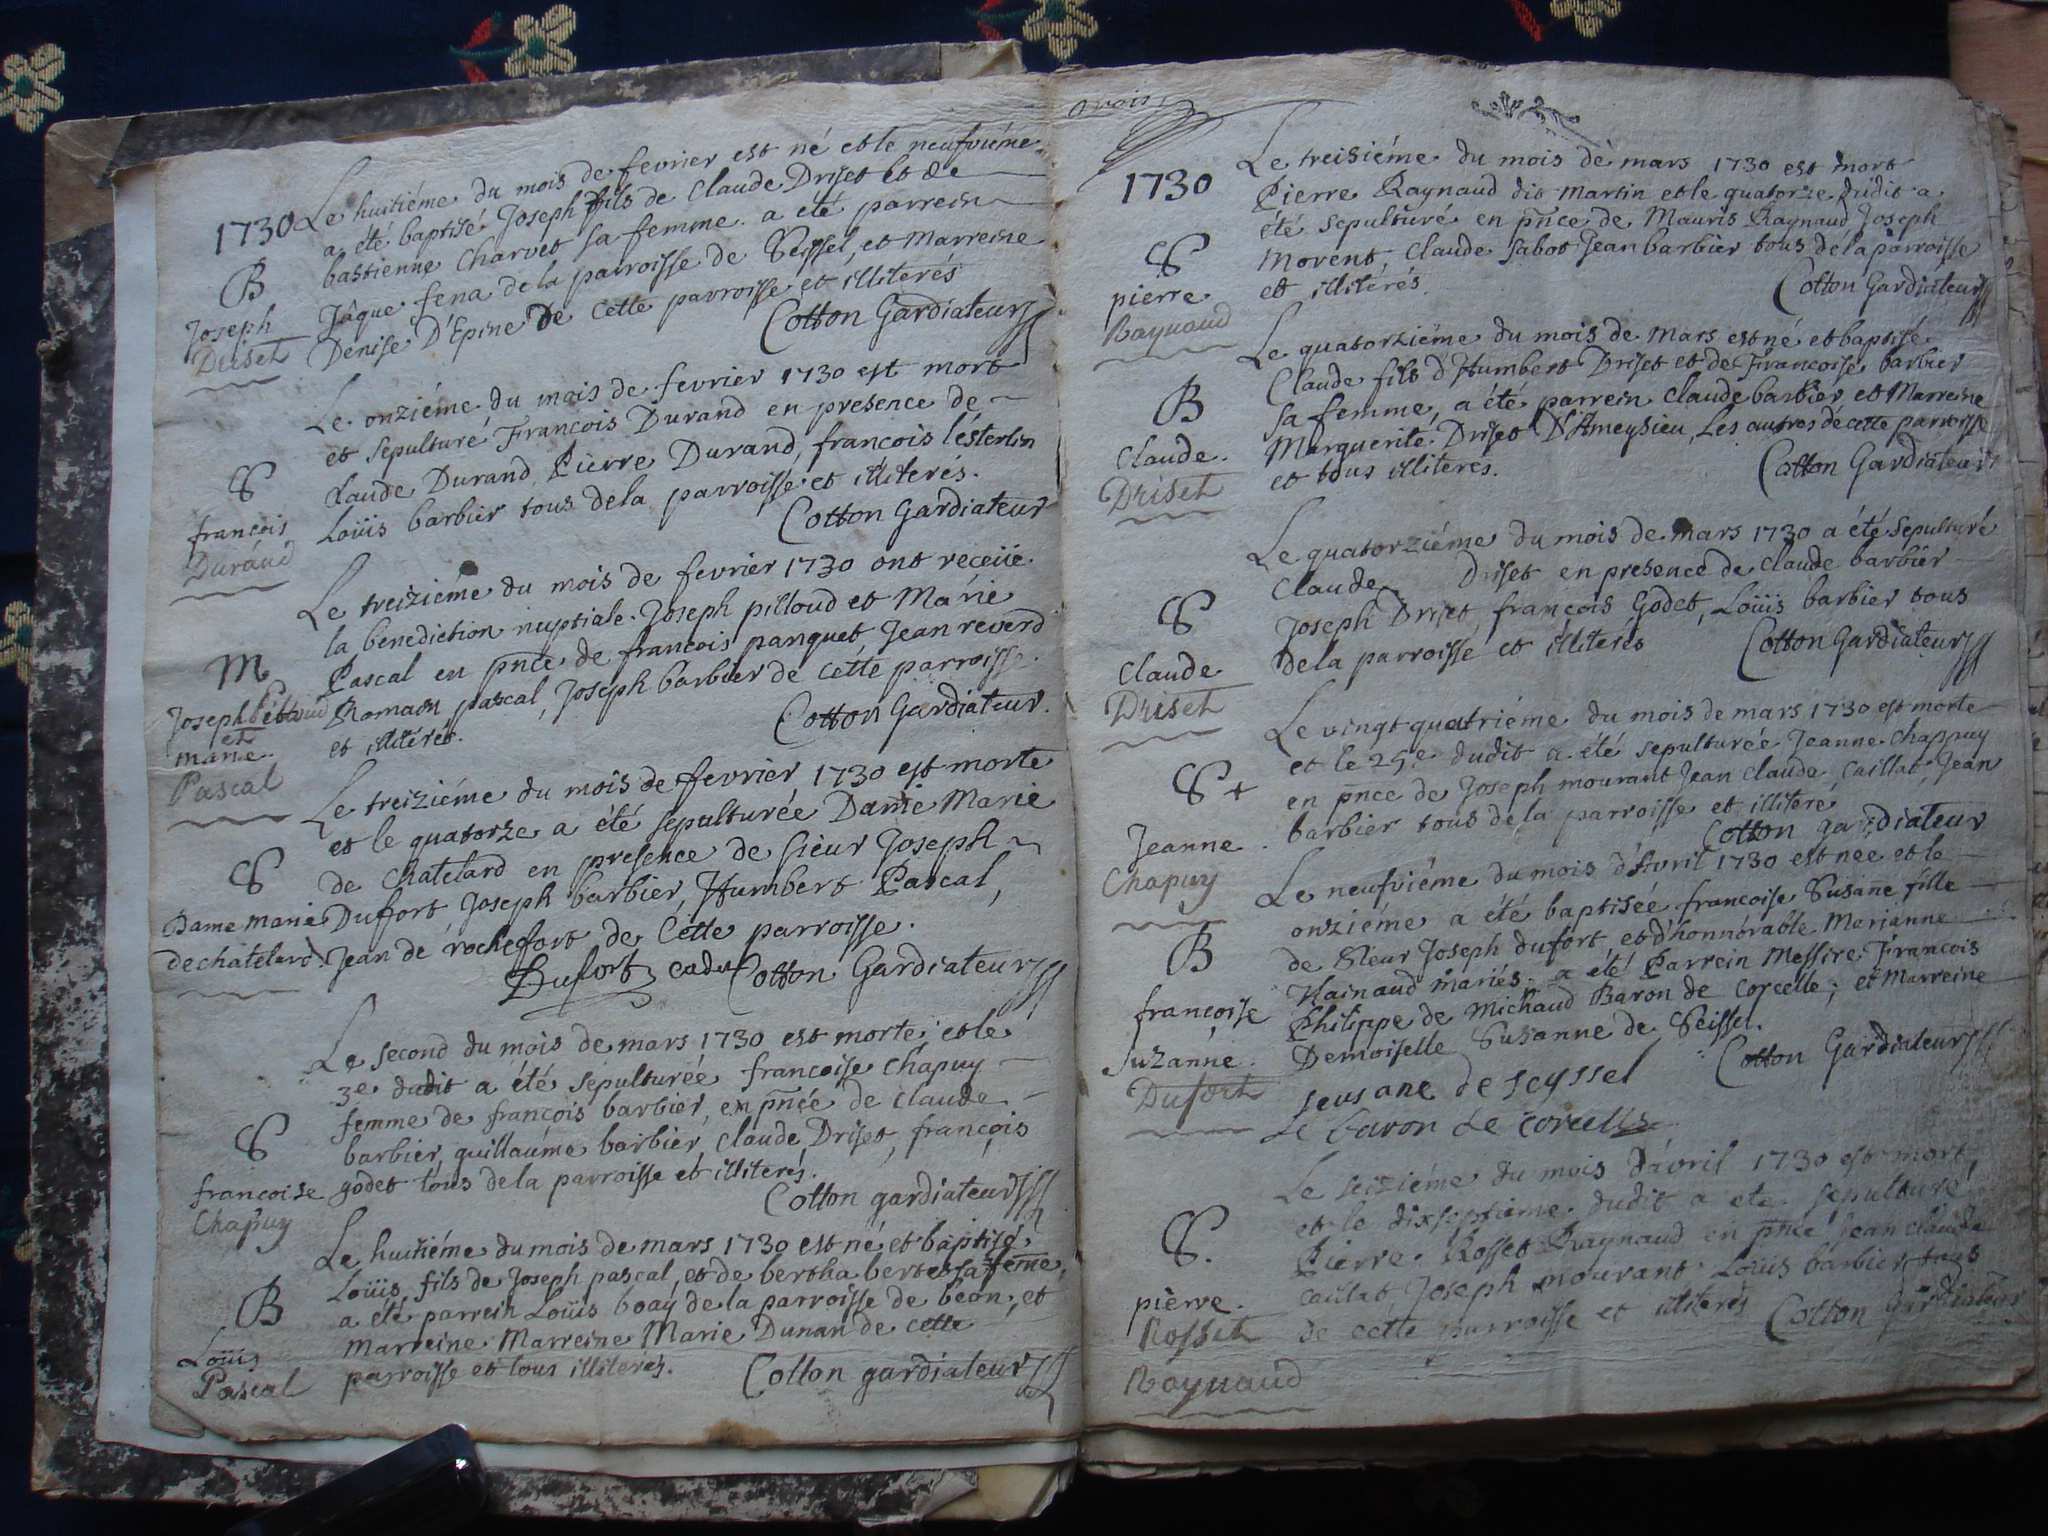 1730
Le huitiéme du mois de fevrier est né et le neufviéme
a été baptisé Joseph fils de Claude Driset et de
bastienne Charvet sa femme. a été parrein
Jâque fena de la parroisse de Seissel, et Marreine
Denise D'Epine De Cette parroisse et illiterés
Cotton Gardiateur
B
Joseph
Driset
Le onziéme du mois de fevrier 1730 est mort
et sepulturé François Durand en presence de
Claude Durand, Pierre Durand, françois lesterlin
Loüis barbier tous dela parroisse et illiterés.
Cotton Gardiateur
S
françois
Durand
Le treiziéme du mois de fevrier 1730 ont receüe
la benediction nuptiale Joseph pilloud et Marie
Pascal en pnce de françois panquet Jean reverd
Romain pascal, Joseph barbier de cette parroisse
et illiterés.
Cotton Gardiateur.
M
Joseph
et
marie
Pascal
Le treiziéme du mois de fevrier 1730 est morte
et le quatorze a été sepulturée Dame Marie
de Chatelard en presence de sieur Joseph
Duffort Joseph barbier, Humbert Pascal,
Jean de rocheffort de Cette parroisse.
Dufort Cotton Gardiateur
S
Dame marie
de chatelard.
Le second du mois de mars 1730 est morte, et le
3e dudit a été sepulturée francoise Chapuy
femme de françois barbier, en pnce de Claude
barbier, guillaume barbier, Claude Driset, françois
godet tous de la parroisse et illiterés.
Cotton gardiateur
S
francoise
Chapuy
Le huitiéme du mois de mars 1730 est né et baptisé
Loüis, fils de Joseph pascal, et de bertha bertet sa feme,
a été parrein Loüis boaÿ de la parroisse de beon, et
marreine Marreine Marie Dunan de cette
parroisse et tous illiterés.
Cotton gardiateur
B
Loüis
Pascal
1730
Le treisiéme du mois de mars 1730 est mort
Pierre Raynaud dit Martin et le quatorze dudit a
été sepulturé en pnce de Mauris Raynaud Joseph
Morent, Claude Sabot Jean barbier tous de la parroisse
et illiterés.
Cotton Gardiateur
S
pierre
Raynaud
Le quatorziéme du mois de Mars est né et baptisé
Claude fils d'Humbert Driset et de Francoise barbier
sa femme, a été parrein Claude barbier et Marreine
Marguerite Driset D'Ameysieu, Les autres de cette parroisse
et tous illiteres.
Cotton Gardiateur
B
Claude.
Driset
Le quatorziéme du mois de mars 1730 a été sepulturé
Claude Driset en presence de Claude barbier
Joseph Driset, françois Godet, Loüis barbier tous
de la parroisse et illiterés
Cotton Gardiateur
S
Claude
Driset
Le vingt quatriéme du mois de mars 1730 est morte
et le 25e dudit a été sepulturée Jeanne Chappuy
en pnce de Joseph mourant Jean Claude Caillat, Jean
barbier tous de la parroisse et illiteré
Cotton gardiateur
S +
Jeanne.
Chapuy
Le neufviéme du mois d'Avril 1730 est nee et le
onziéme a été baptisée francoise Susane fille
de Sieur Joseph dufort et d'honnorable Marianne
Hainaud mariés. a été Parrein Messire Francois
Philippe de Michaud Baron de Corcelle; et Marreine
Demoiselle Susanne de Seissel.
Cotton Gardiateur
seusane de seyssel
Le baron de corcelle
B
françoise
suzanne.
Dufort
Le seiziéme du mois d'avril 1730 est mort,
et le dixseptieme dudit a eté sepulturé
Pierre Rosset Raynaud en pnce Jean Claude
Caillat Joseph mourant Loüis barbier tous
de cette parroisse et illiterés
Cotton Gardiateur
S.
pierre.
Rosset
Raynaud